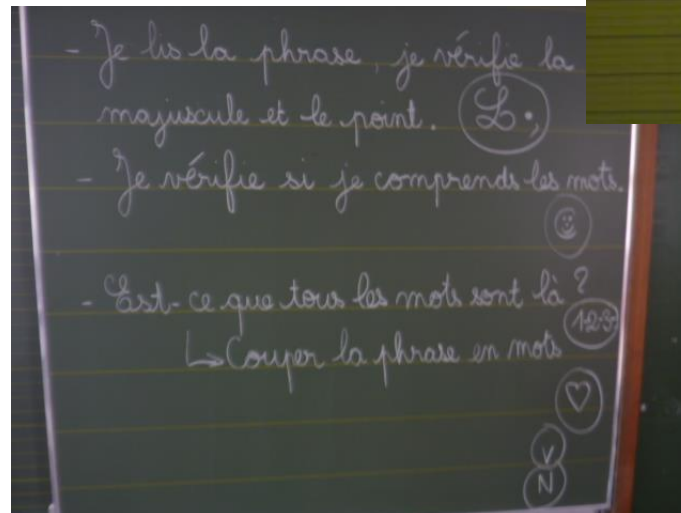 - Je lis la phrase, je vérifie la
majuscule et le point. L . ,
- Je vérifie si je comprends les mots.
- Est-ce que tous les mots sont là ?
1.2.3.
↳ Couper la phrase en mots
V
N